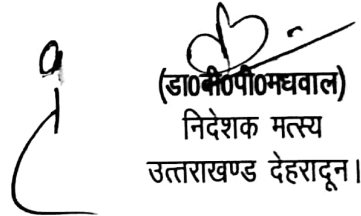 (डा0बी0पी0मधवाल)
निदेशक मत्स्य
उत्तराखण्ड देहरादून।